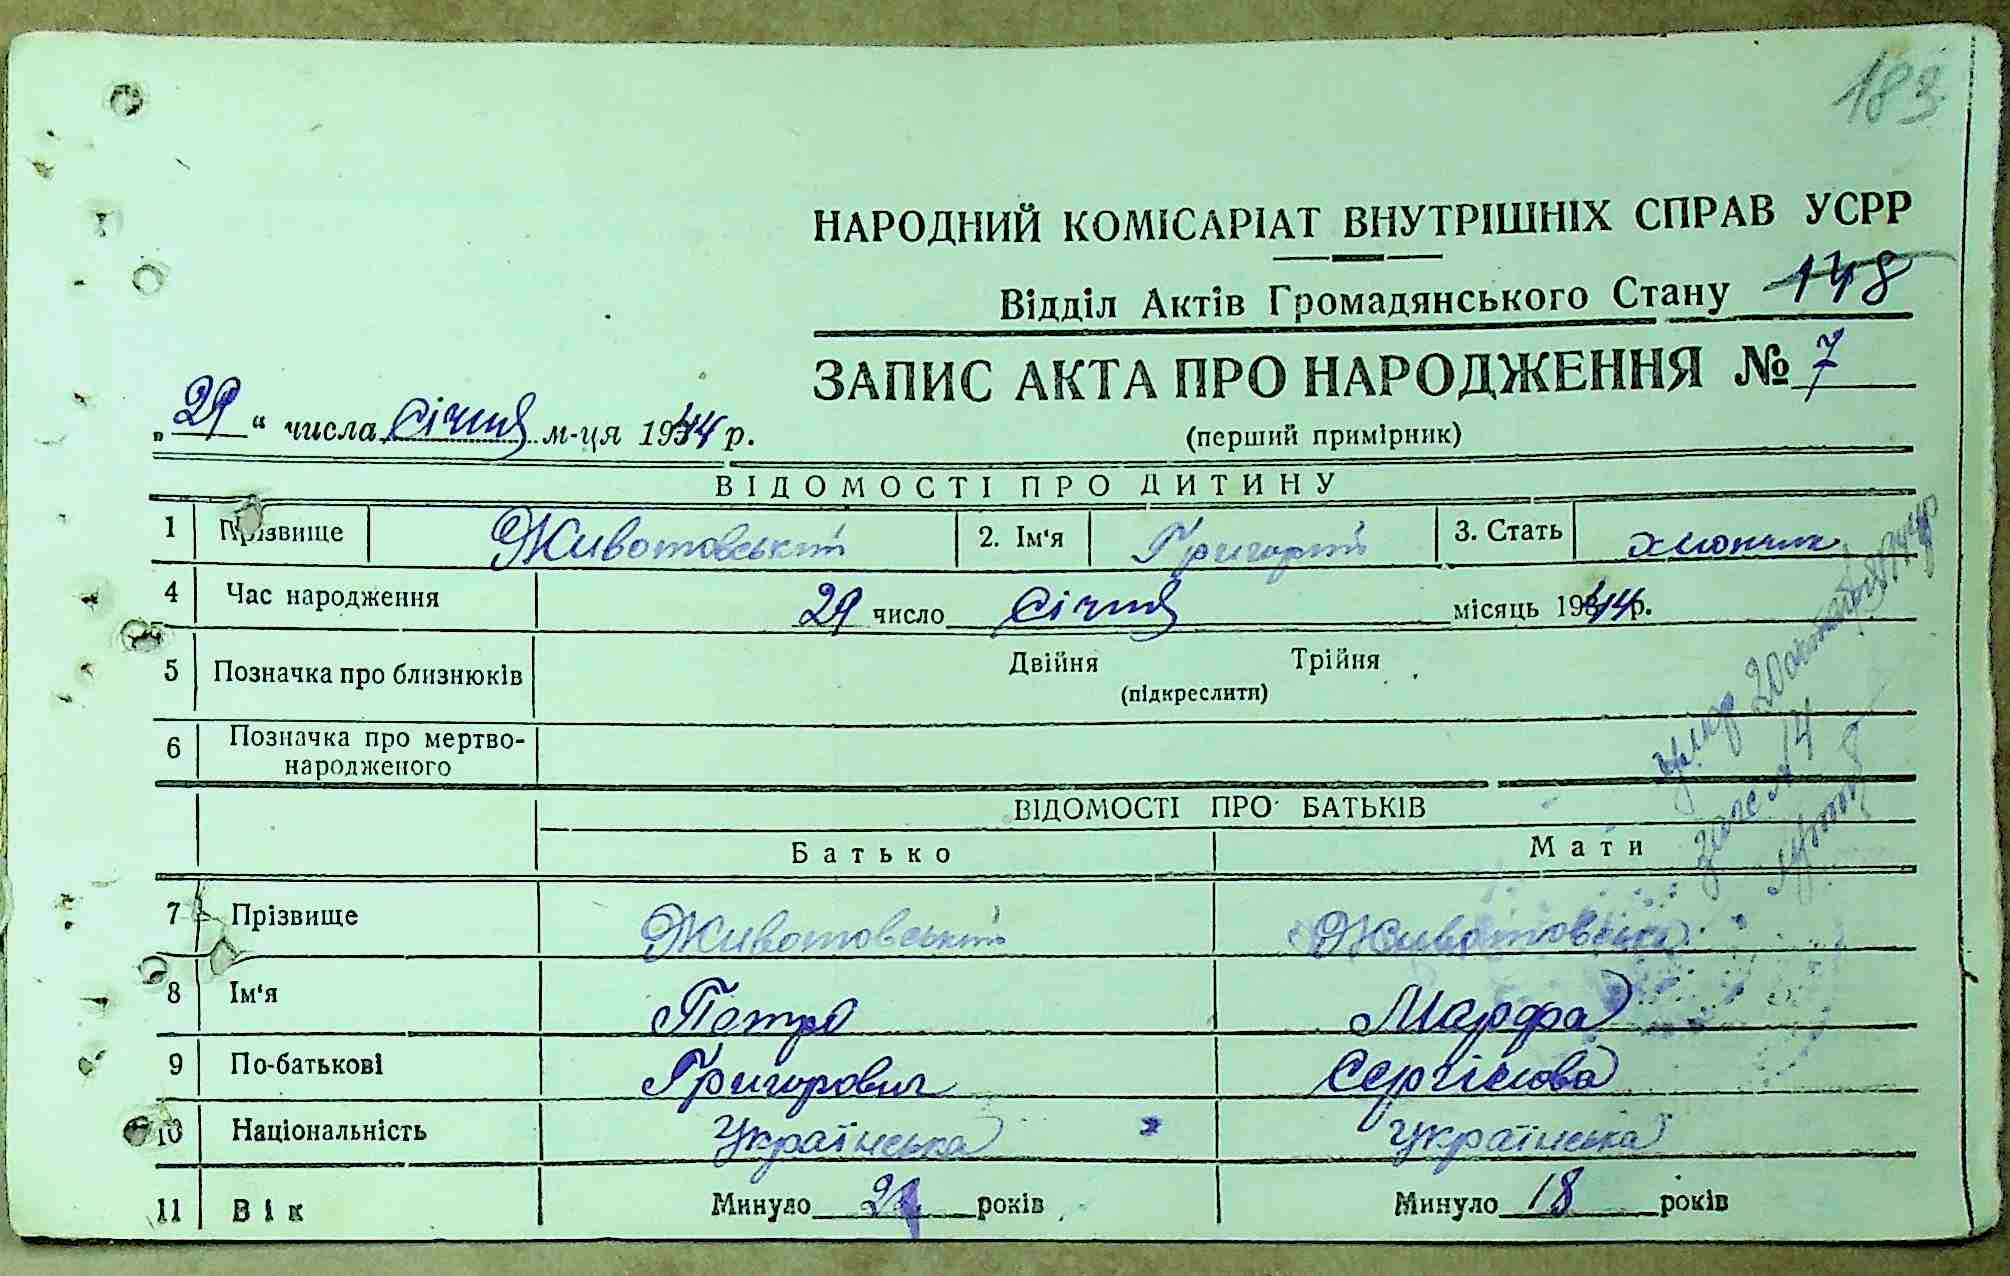 183
НАРОДНИЙ КОМІСАРІАТ ВНУТРІШНІХ СПРАВ УСРР
Відділ Актів Громадянського Стану 148
ЗАПИС АКТА ПРО НАРОДЖЕННЯ № 7
„29“ числа січня м-ця 1944 р.
(перший примірник)
ВІДОМОСТІ ПРО ДИТИНУ
1 Прізвище Животовський 2. Ім'я Григорій 3. Стать хлопчик
4 Час народження 29 число січня місяць 1944 р.
5 Позначка про близнюків Двійня Трійня
(підкреслити)
6 Позначка про мертво-
народженого
ВІДОМОСТІ ПРО БАТЬКІВ
Батько Мати
7 Прізвище Животовський Животовська
8 Ім'я Петро Марфа
9 По-батькові Григорович Сергієвна
10 Національність Українська Українська
11 Вік Минуло років Минуло 18 років